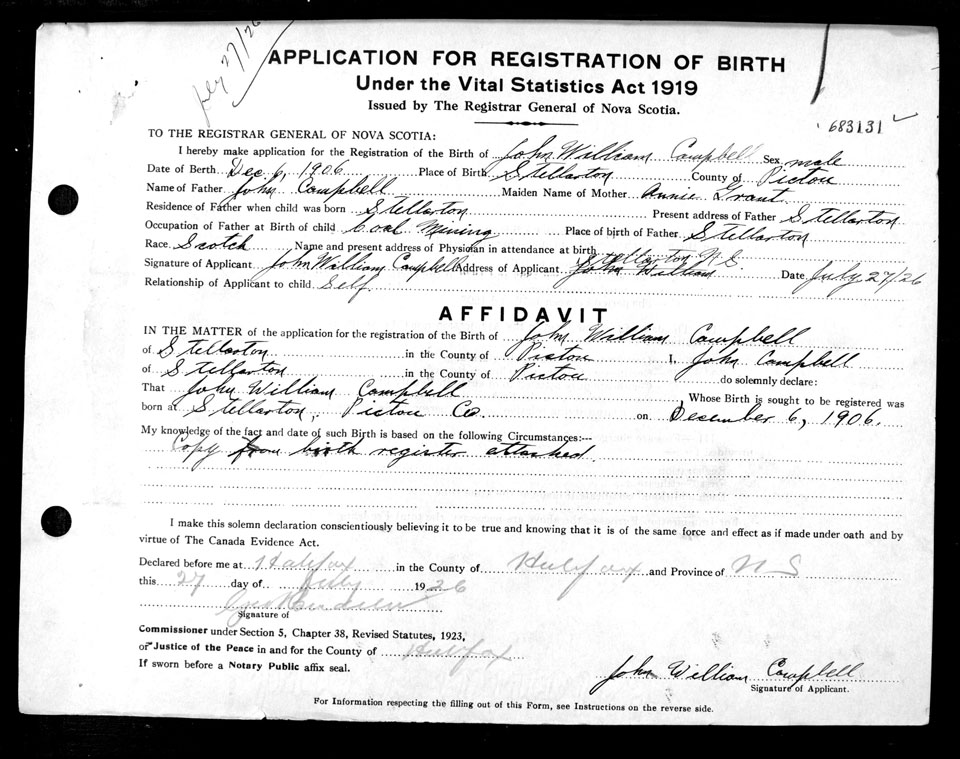 July 27/26
APPLICATION FOR REGISTRATION OF BIRTH
Under the Vital Statistics Act 1919
Issued by The Registrar General of Nova Scotia.
683131
TO THE REGISTRAR GENERAL OF NOVA SCOTIA:
I hereby make application for the Registration of the Birth of John William Campbell Sex male
Date of Birth Dec 6, 1906 Place of Birth Stellarton County of Pictou
Name of Father John Campbell Maiden Name of Mother Annie Grant
Residence of Father when child was born Stellarton Present address of Father Stellarton
Occupation of Father at Birth of child Coal Mining Place of birth of Father Stellarton
Race. Scotch Name and present address of Physician in attendance at birth
Signature of Applicant John William Campbell Address of Applicant Stellarton N S John William Date July 27/26
Relationship of Applicant to child Self
AFFIDAVIT
IN THE MATTER of the application for the registration of the Birth of John William Campbell
of Stellarton in the County of Pictou I, John Campbell
of Stellarton in the County of Pictou do solemnly declare:
That John William Campbell, Whose Birth is sought to be registered was
born at Stellarton, Pictou Co. on December 6, 1906.
My knowledge of the fact and date of such Birth is based on the following Circumstances:--
Copy from birth register attached.
I make this solemn declaration conscientiously believing it to be true and knowing that it is of the same force and effect as if made under oath and by
virtue of The Canada Evidence Act.
Declared before me at Halifax in the County of Halifax and Province of N S
this 27 day of July 1926
Signature of
Commissioner under Section 5, Chapter 38, Revised Statutes, 1923,
or Justice of the Peace in and for the County of Halifax
If sworn before a Notary Public affix seal.
John William Campbell
Signature of Applicant.
For Information respecting the filling out of this Form, see Instructions on the reverse side.